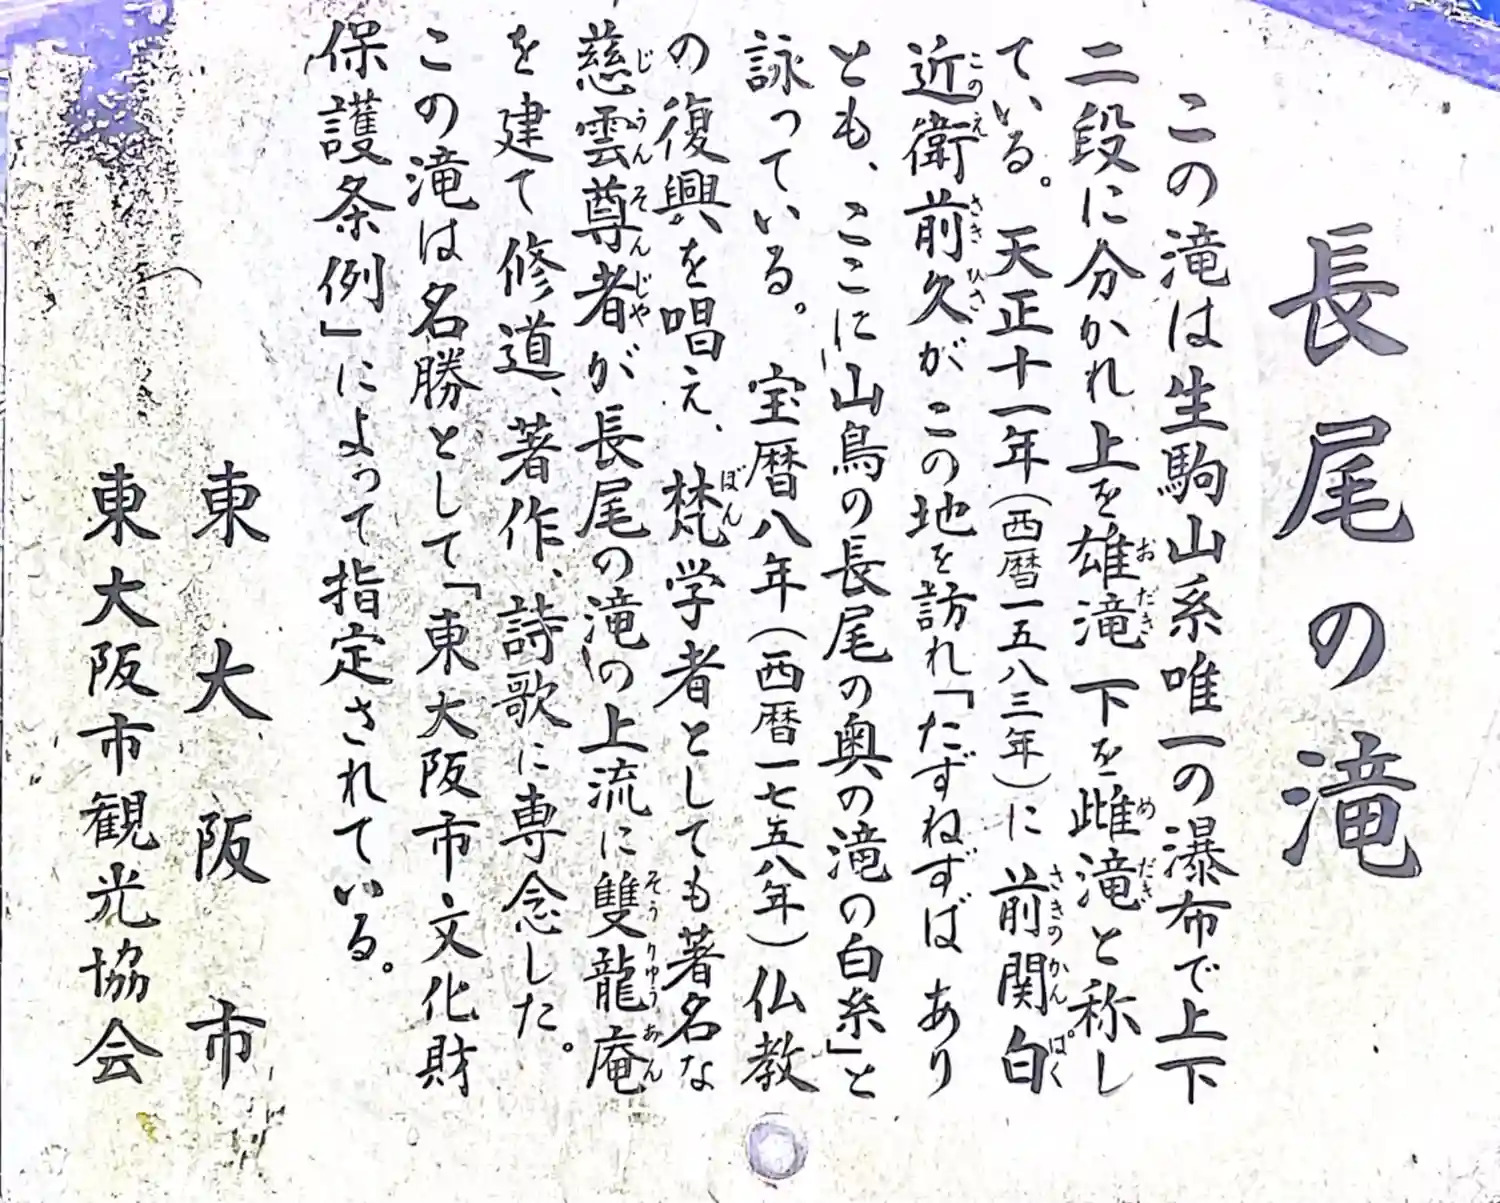 長尾の滝
この滝は生駒山系唯一の瀑布で上下
二段に分かれ上を雄滝下を雌滝と称し
ている。天正十一年(西暦一五八三年)に前関白
近衛前久がこの地を訪れ「たずねずば あり
とも、ここに山鳥の長尾の奥の滝の白糸」と
詠っている。宝暦八年(西暦一七五八年)仏教
の復興を唱え、梵学者としても著名な
慈雲尊者が長尾の滝の上流に雙龍庵
を建て修道、著作、詩歌に専念した。
この滝は名勝として「東大阪市文化財
保護条例」によって指定されている。
東大阪市
東大阪市観光協会